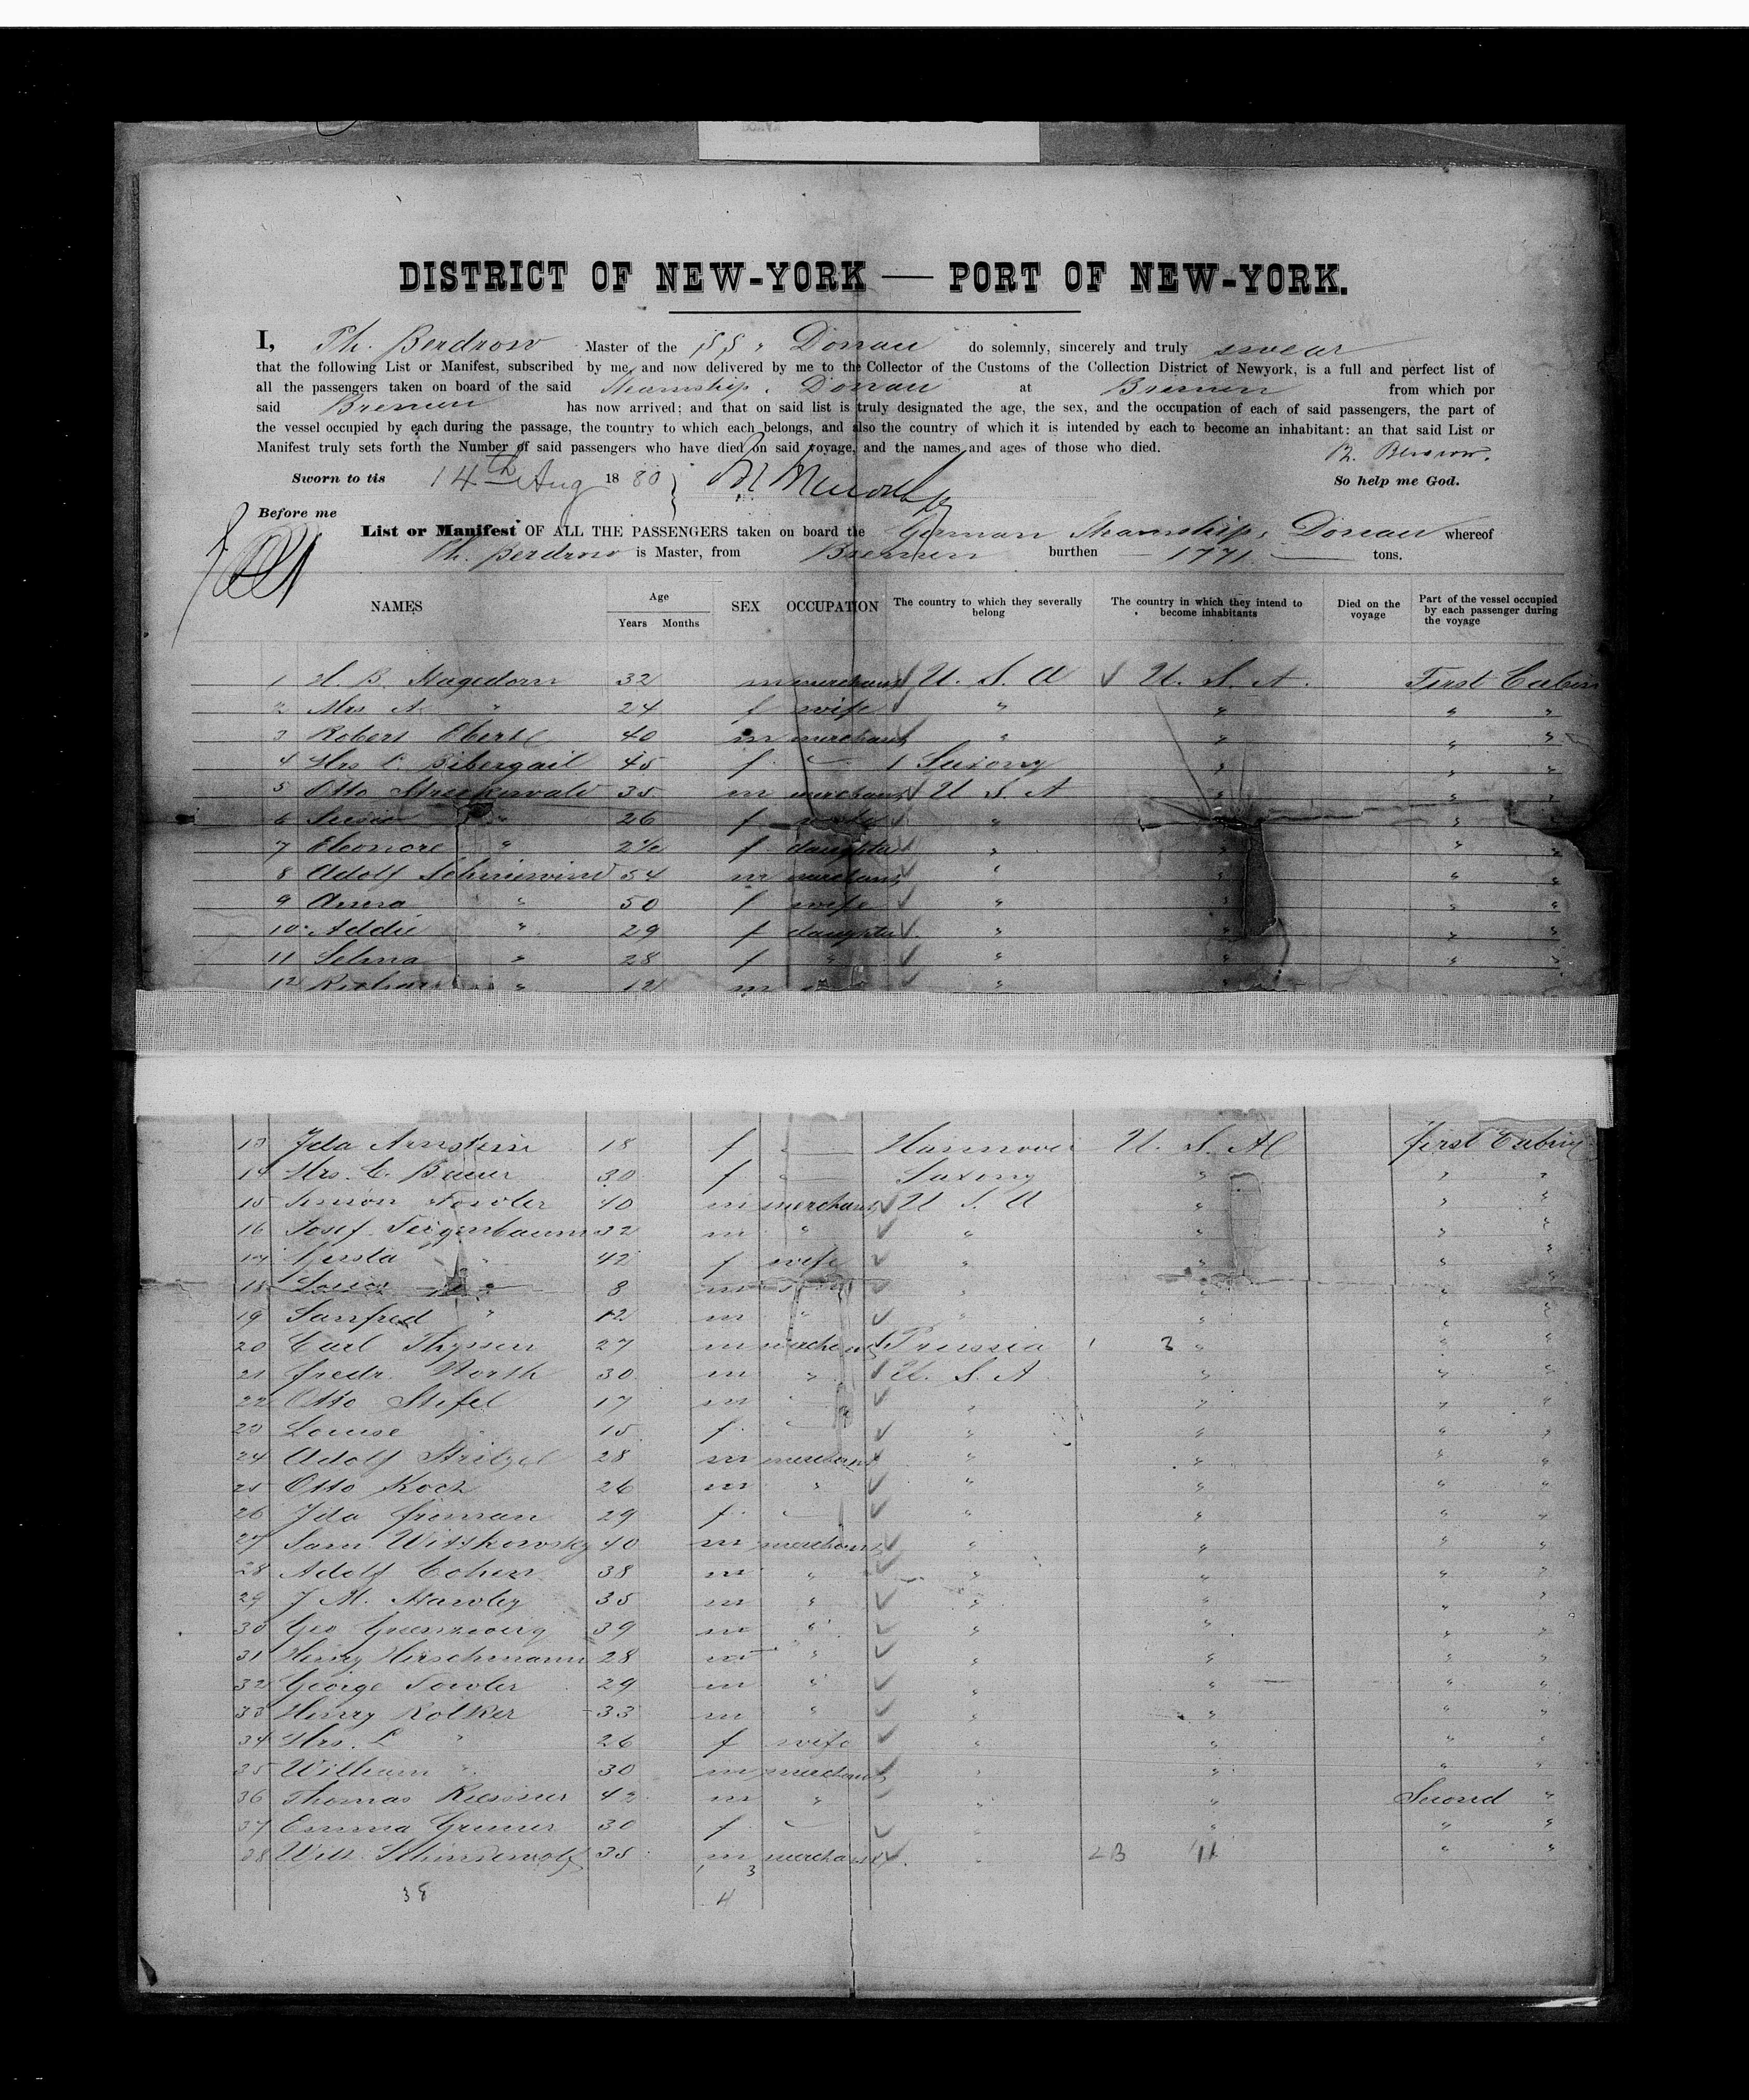 DISTRICT OF NEW-YORK — PORT OF NEW-YORK.
I, Th. Berdrow Master of the SS " Donau do solemnly, sincerely and truly swear
that the following List or Manifest, subscribed by me, and now delivered by me to the Collector of the Customs of the Collection District of Newyork, is a full and perfect list of
all the passengers taken on board of the said Steamship " Donau at Bremen from which por
said Bremen has now arrived; and that on said list is truly designated the age, the sex, and the occupation of each of said passengers, the part of
the vessel occupied by each during the passage, the country to which each belongs, and also the country of which it is intended by each to become an inhabitant: an that said List or
Manifest truly sets forth the Number of said passengers who have died on said voyage, and the names and ages of those who died.
Sworn to tis 14th Aug 1880 So help me God.
Before me
List or Manifest OF ALL THE PASSENGERS taken on board the German Steamship " Donau whereof
Th. Berdrow is Master, from Bremen burthen — 1771 — tons.
NAMES Age Years Months SEX OCCUPATION The country to which they severally belong The country in which they intend to become inhabitants Died on the voyage Part of the vessel occupied by each passenger during the voyage
1 H. B. Hagedorn 32 m merchant U. S. A U. S. A. First Cabin
2 Mrs A. " 24 f wife " " " "
3 Robert 40 m merchant " " " "
4 Mrs 45 f — Saxony " " "
5 Otto Streckewald 35 m merchant U S A " " "
6 " 26 f wife " " " "
7 Eleonore " f daughter " " " "
8 Adolf Schniewind 54 m merchant " " " "
9 Anna " 50 f wife " " " "
10 Addie " 29 f daughter " " " "
11 Selma " 28 f " " " " "
12 Richard " 12 m " " "
13 Ida Arnstein 18 f — Hannover U. S. A First Cabin
14 Mrs. C. Bauer 30 f — Saxony " " "
15 Simon Fowler 40 m merchant U S A " " "
16 Josef Feigenbaum 32 m " " " " "
17 " 42 f wife " " " "
18 " 8 m son " " " "
19 Sanfred " 12 m " " " " "
20 Carl Thyssen 27 m merchant Prussia " " "
21 Fredr. North 30 m " U. S. A " " "
22 Otto Stifel 17 m — " " " "
23 Louise " 15 f — " " " "
24 Adolf Stritzel 28 m merchant " " " "
25 Otto Koch 26 m " " " " "
26 Ida Friman 29 f — " " " "
27 Sam Wittkowsky 40 m merchant " " " "
28 Adolf Cohen 38 m " " " " "
29 J M. Hawley 35 m " " " " "
30 Geo 39 m " " " " "
31 Henry Hirschmann 28 m " " " " "
32 George Fowler 29 m " " " " "
33 Henry Rolker 33 m " " " " "
34 Mrs. L " 26 f wife " " " "
35 William " 30 m merchant " " " "
36 Thomas 42 m " " " Second "
37 Emma 30 f — " " " "
38 Will. Schindewolf 35 m merchant " " " "
38 4